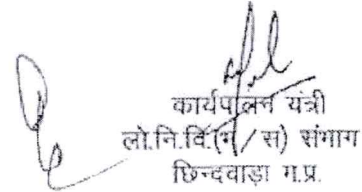 कार्यपालन यंत्री
लो.नि.वि.(भ / स) संभाग
छिन्दवाड़ा म.प्र.